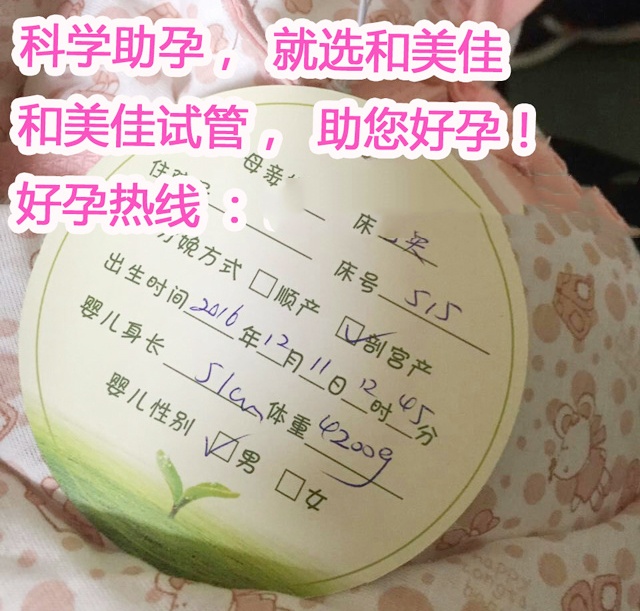 科学助孕， 就选和美佳
和美佳试管， 助您好孕！
好孕热线 ：
母亲
住 床
分娩方式 □顺产 床号 515
☑剖宫产
出生时间 2016 年 12 月 11 日 12 时 45 分
婴儿身长 51cm 体重 4200g
婴儿性别 ☑男 □女